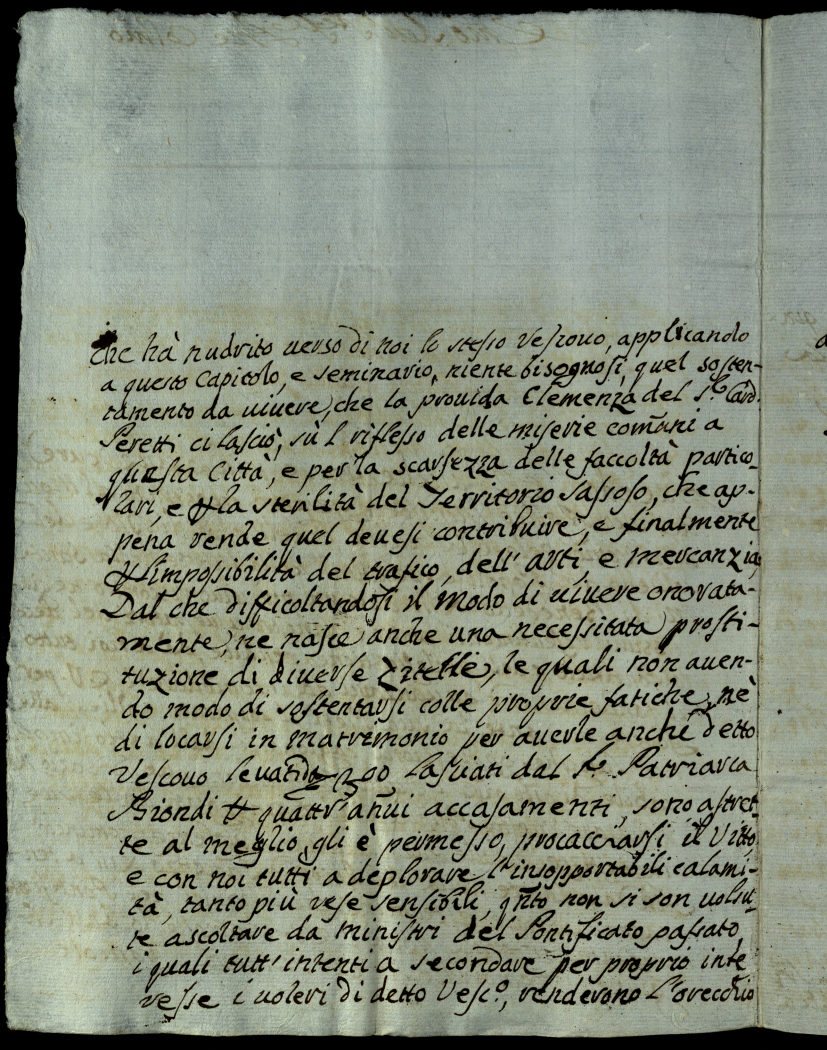 che hà nudrito uerso di noi lo stesso Vescouo, applicando
a questo Capitolo, e seminario, niente bisognosi, quel sosten-
tamento da uiuere, che la prouida Clemenza del S.r Card.
Peretti ci lasciò, sù l riflesso delle miserie comũni a
questa Città, e per la scarsezza delle faccoltà partico-
lari, e p la sterilità del Territorio sassoso, che ap-
pena rende quel deuesi contribuire, e finalmente
p l'impossibilità del trafico, dell' arti, e mercanzia,
Dal che difficoltandosi il modo di uiuere onorata-
mente, ne nasce anche una necessitata prosti-
tuzione di diuerse zitelle, le quali non auen-
do modo di sostentarsi colle proprie fatiche, nè
di locarsi in matrimonio per auerle anche detto
Vescouo leuati 300 lasciati dal S.r Patriarca
Biondi p quattr' añui accasamenti, sono astret-
te al meglio, gli è permesso, procacciarsi il Vitto,
e con noi tutti a deplorare l'insopportabili calami-
tà, tanto più rese sensibili, qñto non si son uolsu-
te ascoltare da ministri del Pontificato passato,
i quali tutt' intenti a secondare per proprio inte
resse i uoleri di detto Vesc.o, renderono l'orecchio